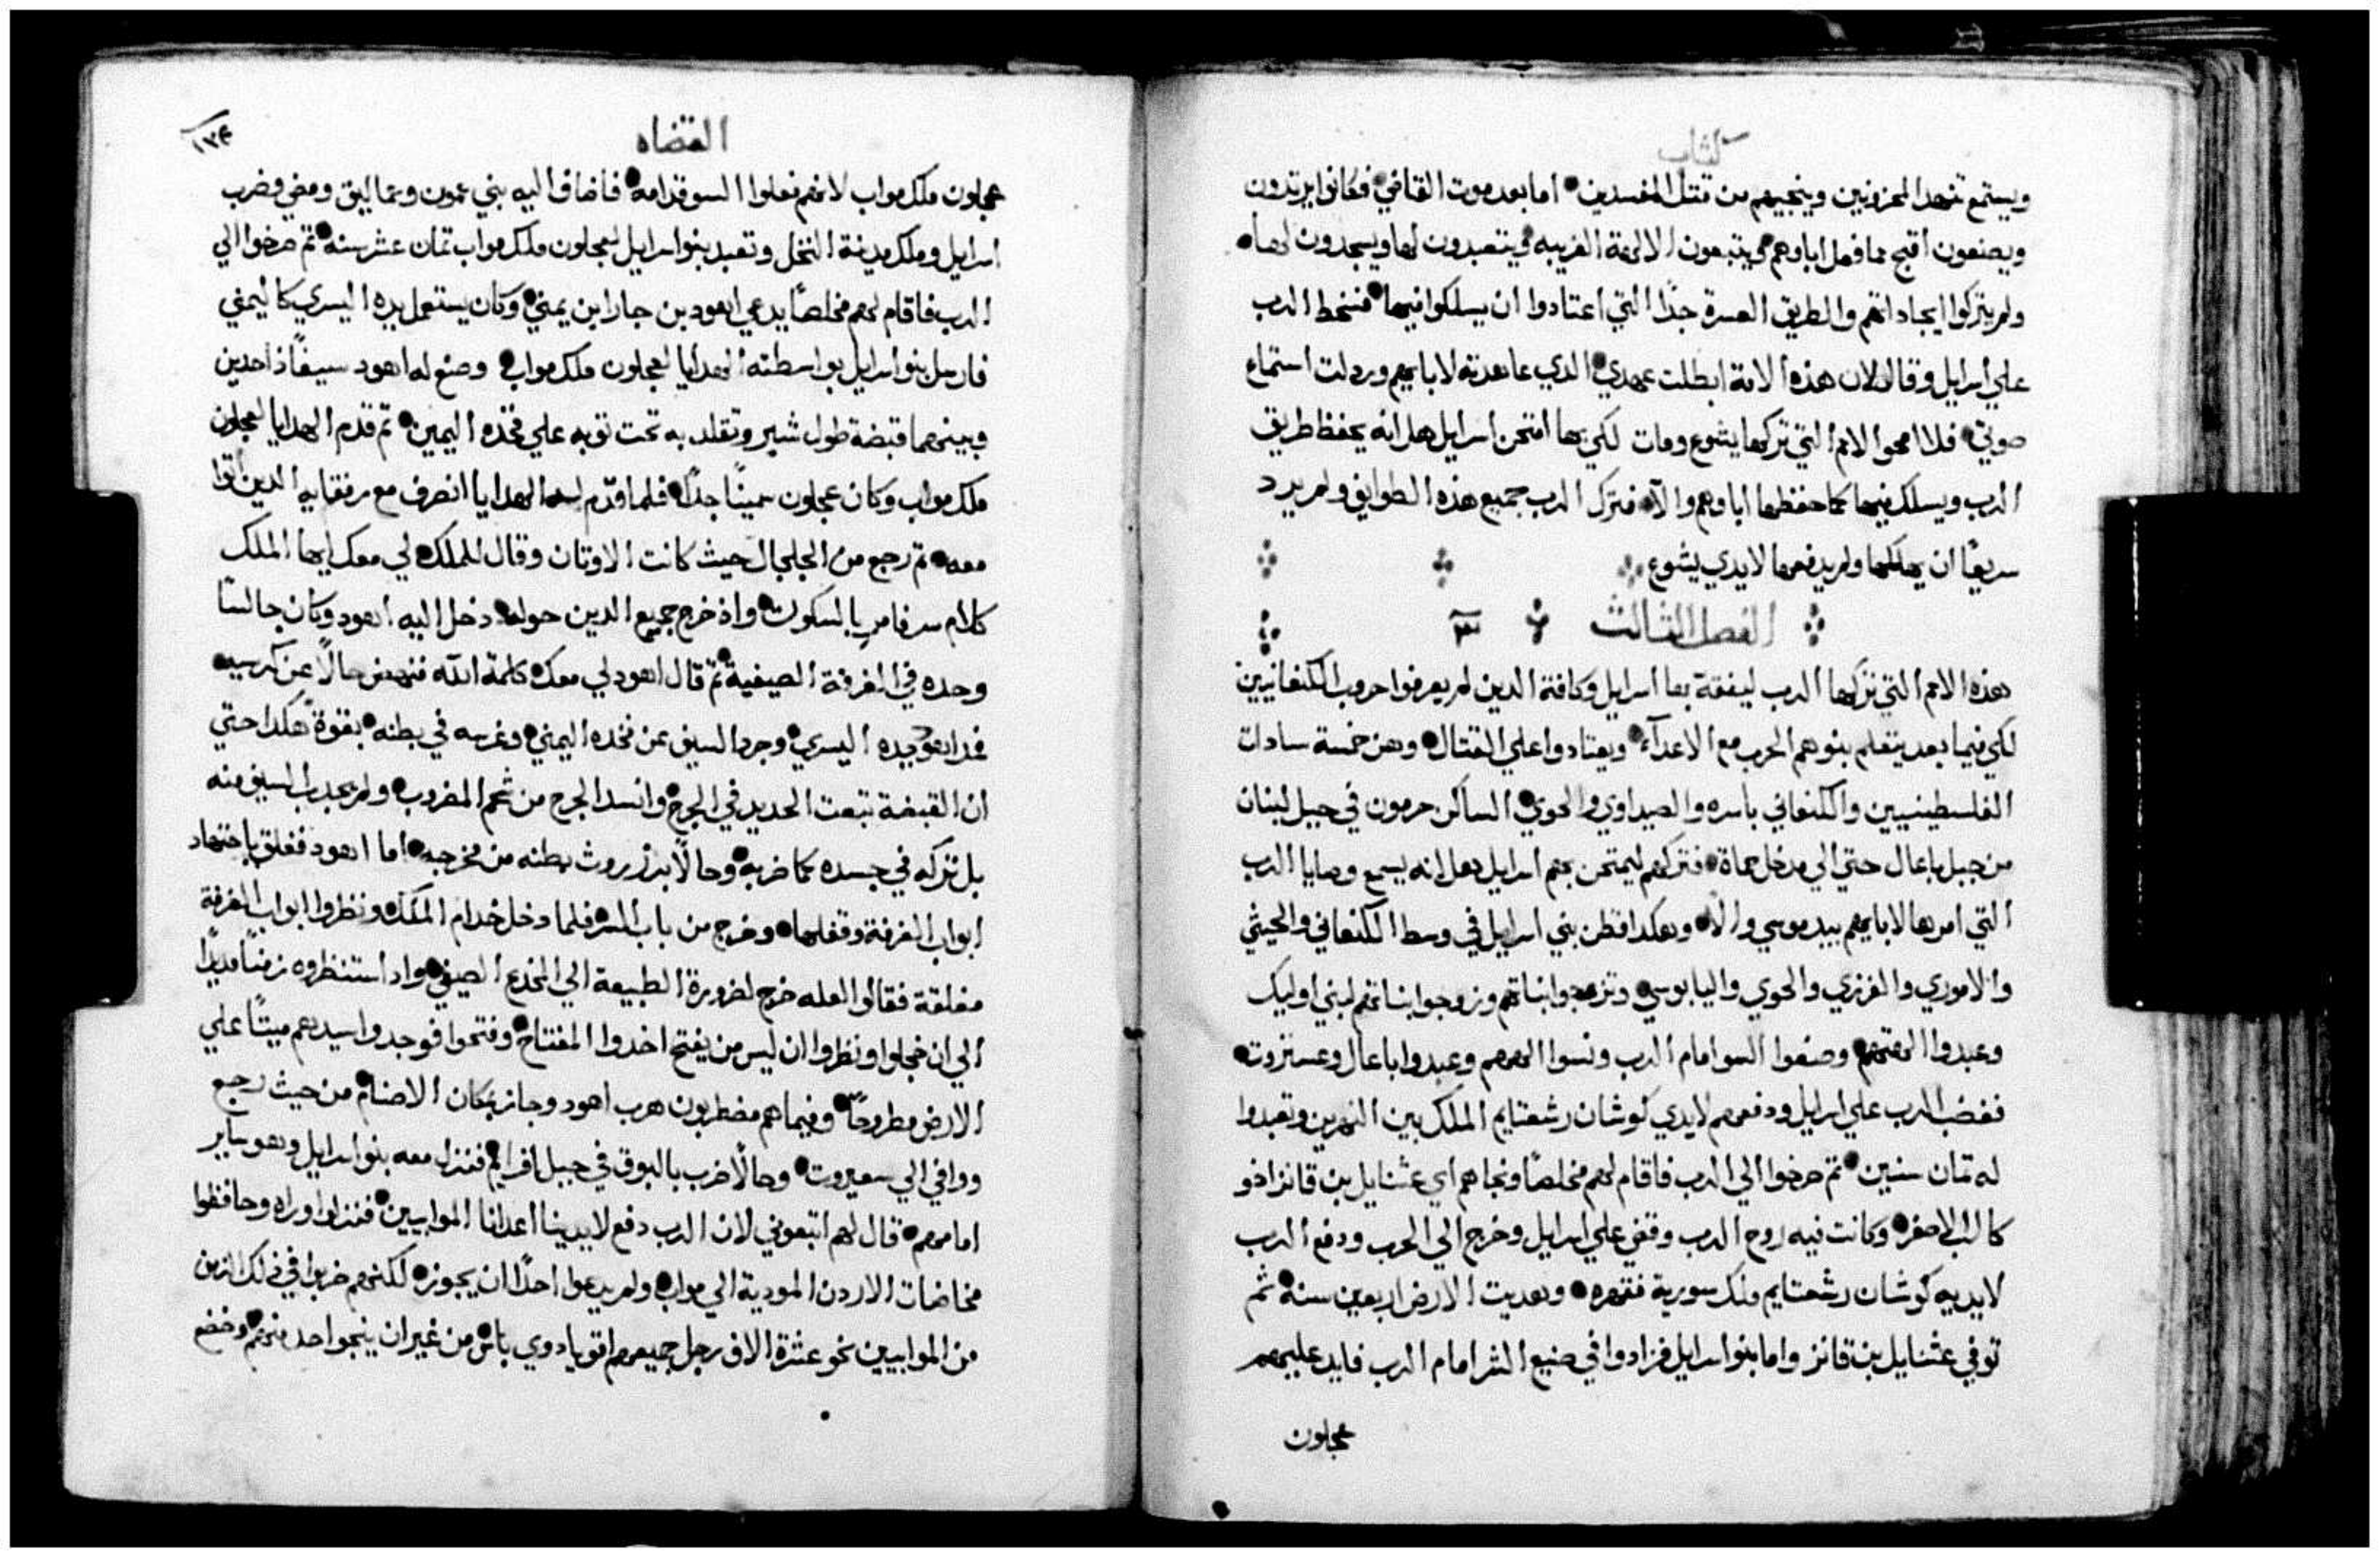 كتاب
ويستمع تنهد المحزونين وينجيهم من قتل المفسدين اما بعد موت القاضي فكانوا يرتدون
ويصنعون اقبح مما فعل اباوهم ويتبعون الالهة الغريبه ويتعبدون لها ويسجدون لها
ولم يتركوا ايجاداتهم والطريق العسرة جدًا التي اعتادوا ان يسلكوا فيها فسخط الرب
علي اسرايل وقال لان هذه الامة ابطلت عهدي الدي عاهدته لابايهم وردلت استماع
صوتي فلا امحو الامم التي تركها يشوع ومات لكي بها امتحن اسرايل هل انه يحفظ طريق
الرب ويسلك فيها كما حفظها اباوهم والا فترك الرب جميع هذه الطوايف ولم يرد
سريعًا ان يهلكها ولم يدفعها لايدي يشوع
الفصل الثالث ٣
هذه الامم التي تركها الرب ليفقة بها اسرايل وكافة الدين لم يعرفوا حروب الكنعانيين
لكي فيما بعد يتعلم بنوهم الحرب مع الاعدآء ويعتادوا علي القتال وهن خمسة سادات
الفلسطينيين والكنعاني باسره والصيداوي والحوي الساكن حرمون في جبل لبنان
من جبل باعال حتي الي مدخل حماة فتركهم ليمتحن بهم اسرايل هل انه يسمع وصايا الرب
التي امر بها لابايهم بيد موسي والا وهكدا قطن بني اسرايل في وسط الكنعاني والحيثي
والاموري والفرزي والحوي واليابوسي وتزوجوا بناتهم وزوجوا بناتهم لبني اوليك
وعبدوا الهتهم وصنعوا السو امام الرب ونسوا الههم وعبدوا باعال وعستروت
فغضب الرب علي اسرايل ودفعهم لايدي كوشان رشعتايم الملك بين النهرين وتعبدوا
له تمان سنين تم صرخوا الي الرب فاقام لهم مخلصًا ونجاهم اي عثنايل بن قاناز اخو
كالب الاصغر وكانت فيه روح الرب وقضي علي اسرايل وخرج الي الحرب ودفع الرب
لايديه كوشان رشعتايم ملك سورية فقهره وهديت الارض اربعين سنة ثم
توفي عثنايل بن قاناز واما بنو اسرايل فزادوا في صنيع الشر امام الرب فايد عليهم
عجلون
القضاه
١٣٤
عجلون ملك مواب لانهم فعلوا السو قدامه فاضاف اليه بني عمون وعماليق ومضي وضرب
اسرايل وملك مدينة النخل وتعبد بنو اسرايل لعجلون ملك مواب تمان عشر سنه تم صرخوا الي
الرب فاقام لهم مخلصًا يدعي اهود بن جارا بن يمني وكان يستعمل يده اليسري كاليمني
فارسل بنو اسرايل بواسطته الهدايا لعجلون ملك مواب وصنع له اهود سيفًا ذا حدين
وبينهما قبضة طول شبر وتقلد به تحت توبه علي فخده اليمين تم قدم الهدايا لعجلون
ملك مواب وكان عجلون سمينًا جدًا فلما قدّم له الهدايا انصرف مع رفقايه الدين اتوا
معه تم رجع من الجلجال حيث كانت الاوتان وقال للملك لي معك ايها الملك
كلام سر فامر بالسكوت واذ خرج جميع الدين حوله دخل اليه اهود وكان جالسًا
وحده في الغرفة الصيفية تم قال اهود لي معك كلمة الله فنهض حالًا عن كرسيه
فمد اهود يده اليسري وجرد السيف عن فخده اليمني وغرسه في بطنه بقوة هكدا حتي
ان القبضة تبعت الحديد في الجرح وانسد الجرح من شحم المضروب ولم يجدب السيف منه
بل تركه في جسده كما ضربه وحالًا برز روث بطنه من مخرجه اما اهود فغلق باجتهاد
ابواب الغرفة وقفلها وخرج من باب السر فلما دخل خدام الملك ونظروا ابواب الغرفة
مغلقة فقالوا لعله خرج لضرورة الطبيعة الي المخدع الصيفي واد استنظروه زمنًا مديدًا
الي ان خجلوا ونظروا ان ليس من يفتح اخدوا المفتاح وفتحوا فوجدوا سيدهم ميتًا علي
الارض مطروحًا وفيما هم مضطربون هرب اهود وجاز بمكان الاصنام من حيث رجع
ووافي الي سعيروت وحالًا ضرب بالبوق في جبل افرايم فنزل معه بنو اسرايل وهو ساير
امامهم قال لهم اتبعوني لان الرب دفع لايدينا اعدانا الموابيين فنزلوا وراه وحافظوا
مخاضات الاردن المودية الي مواب ولم يدعوا احدًا ان يجوزه لكنهم ضربوا في ذلك الزمن
من الموابيين نحو عشرة الاف رجل جميعهم اقويا دوي باس من غير ان ينجوا احد منهم وخضع